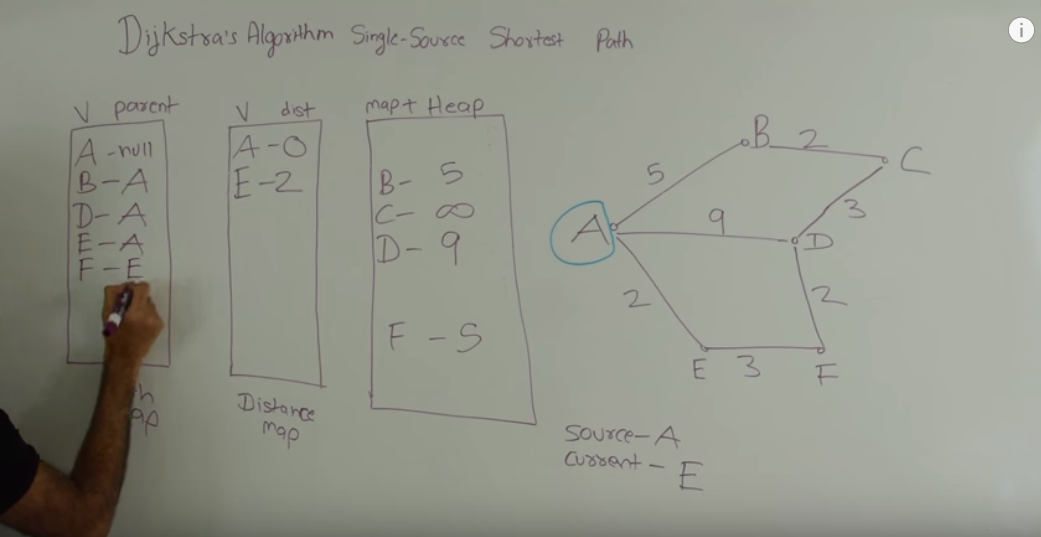 Dijkstra's Algorithm Single-Source Shortest Path
V parent
A - null
B - A
D - A
E - A
F - E
V dist
A - 0
E - 2
Distance
map
map + Heap
B - 5
C - ∞
D - 9
F - 5
B 2 C
5
A 9 D
3
2
2
E 3 F
Source - A
Current - E
i